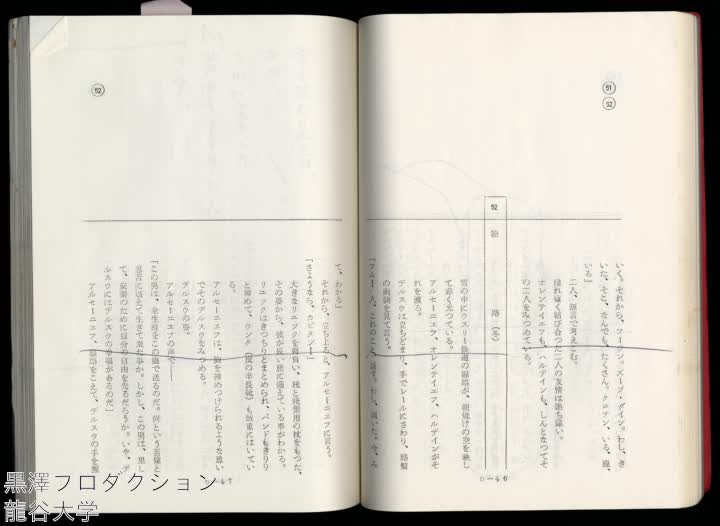 51
52
いく。それから、ワーテン。ズーブ・グイン。わし、き
いた、そこ、なんでも、たくさん。クロテン、いる、鹿、
いる」
二人、無言で考えこむ。
オレンテイエフも、ハルデインも、しんとなつてそ
の二人をみつめている。
52 線 路（冬）
雪の中にウスリー鉄道の線路が、朝焼けの空を映し
て赤く光つている。
アルセーニエフ、オレンテイエフ、ハルデインがそ
れを渡る。
デルスウは立ちどまり、手でレールにさわり、路盤
の両側を見て言う。
ローも6
52
て、わかる」
それから、立ち上ると、アルセーニエフに言う。
「さようなら、カピタン！」
大きなリユツクを背負い、銃と
その姿から、彼が長い旅に備えている事がわかる。
リユツクはきつちりとまとめられ、バンドもきりり
と締めて、ウンタ（皮の半長靴）も厳重にはいてい
る。
アルセーニエフは、胸を締めつけられるような思い
でそのデルスウをみつめる。
デルスウの姿。
アルセーニエフの声で——
「この男は、全生涯をこの森で送るのだ。何という苦難と
窮乏に堪えて生きて来た事か。しかし、この男は、果し
て、安楽のために自分の自由を売るだろうか。いや、デ
ルスウにはデルスウの幸福があるのだ」
アルセーニエフ、線路をこえて、デルスウの手を握
黒澤プロダクション
龍谷大学